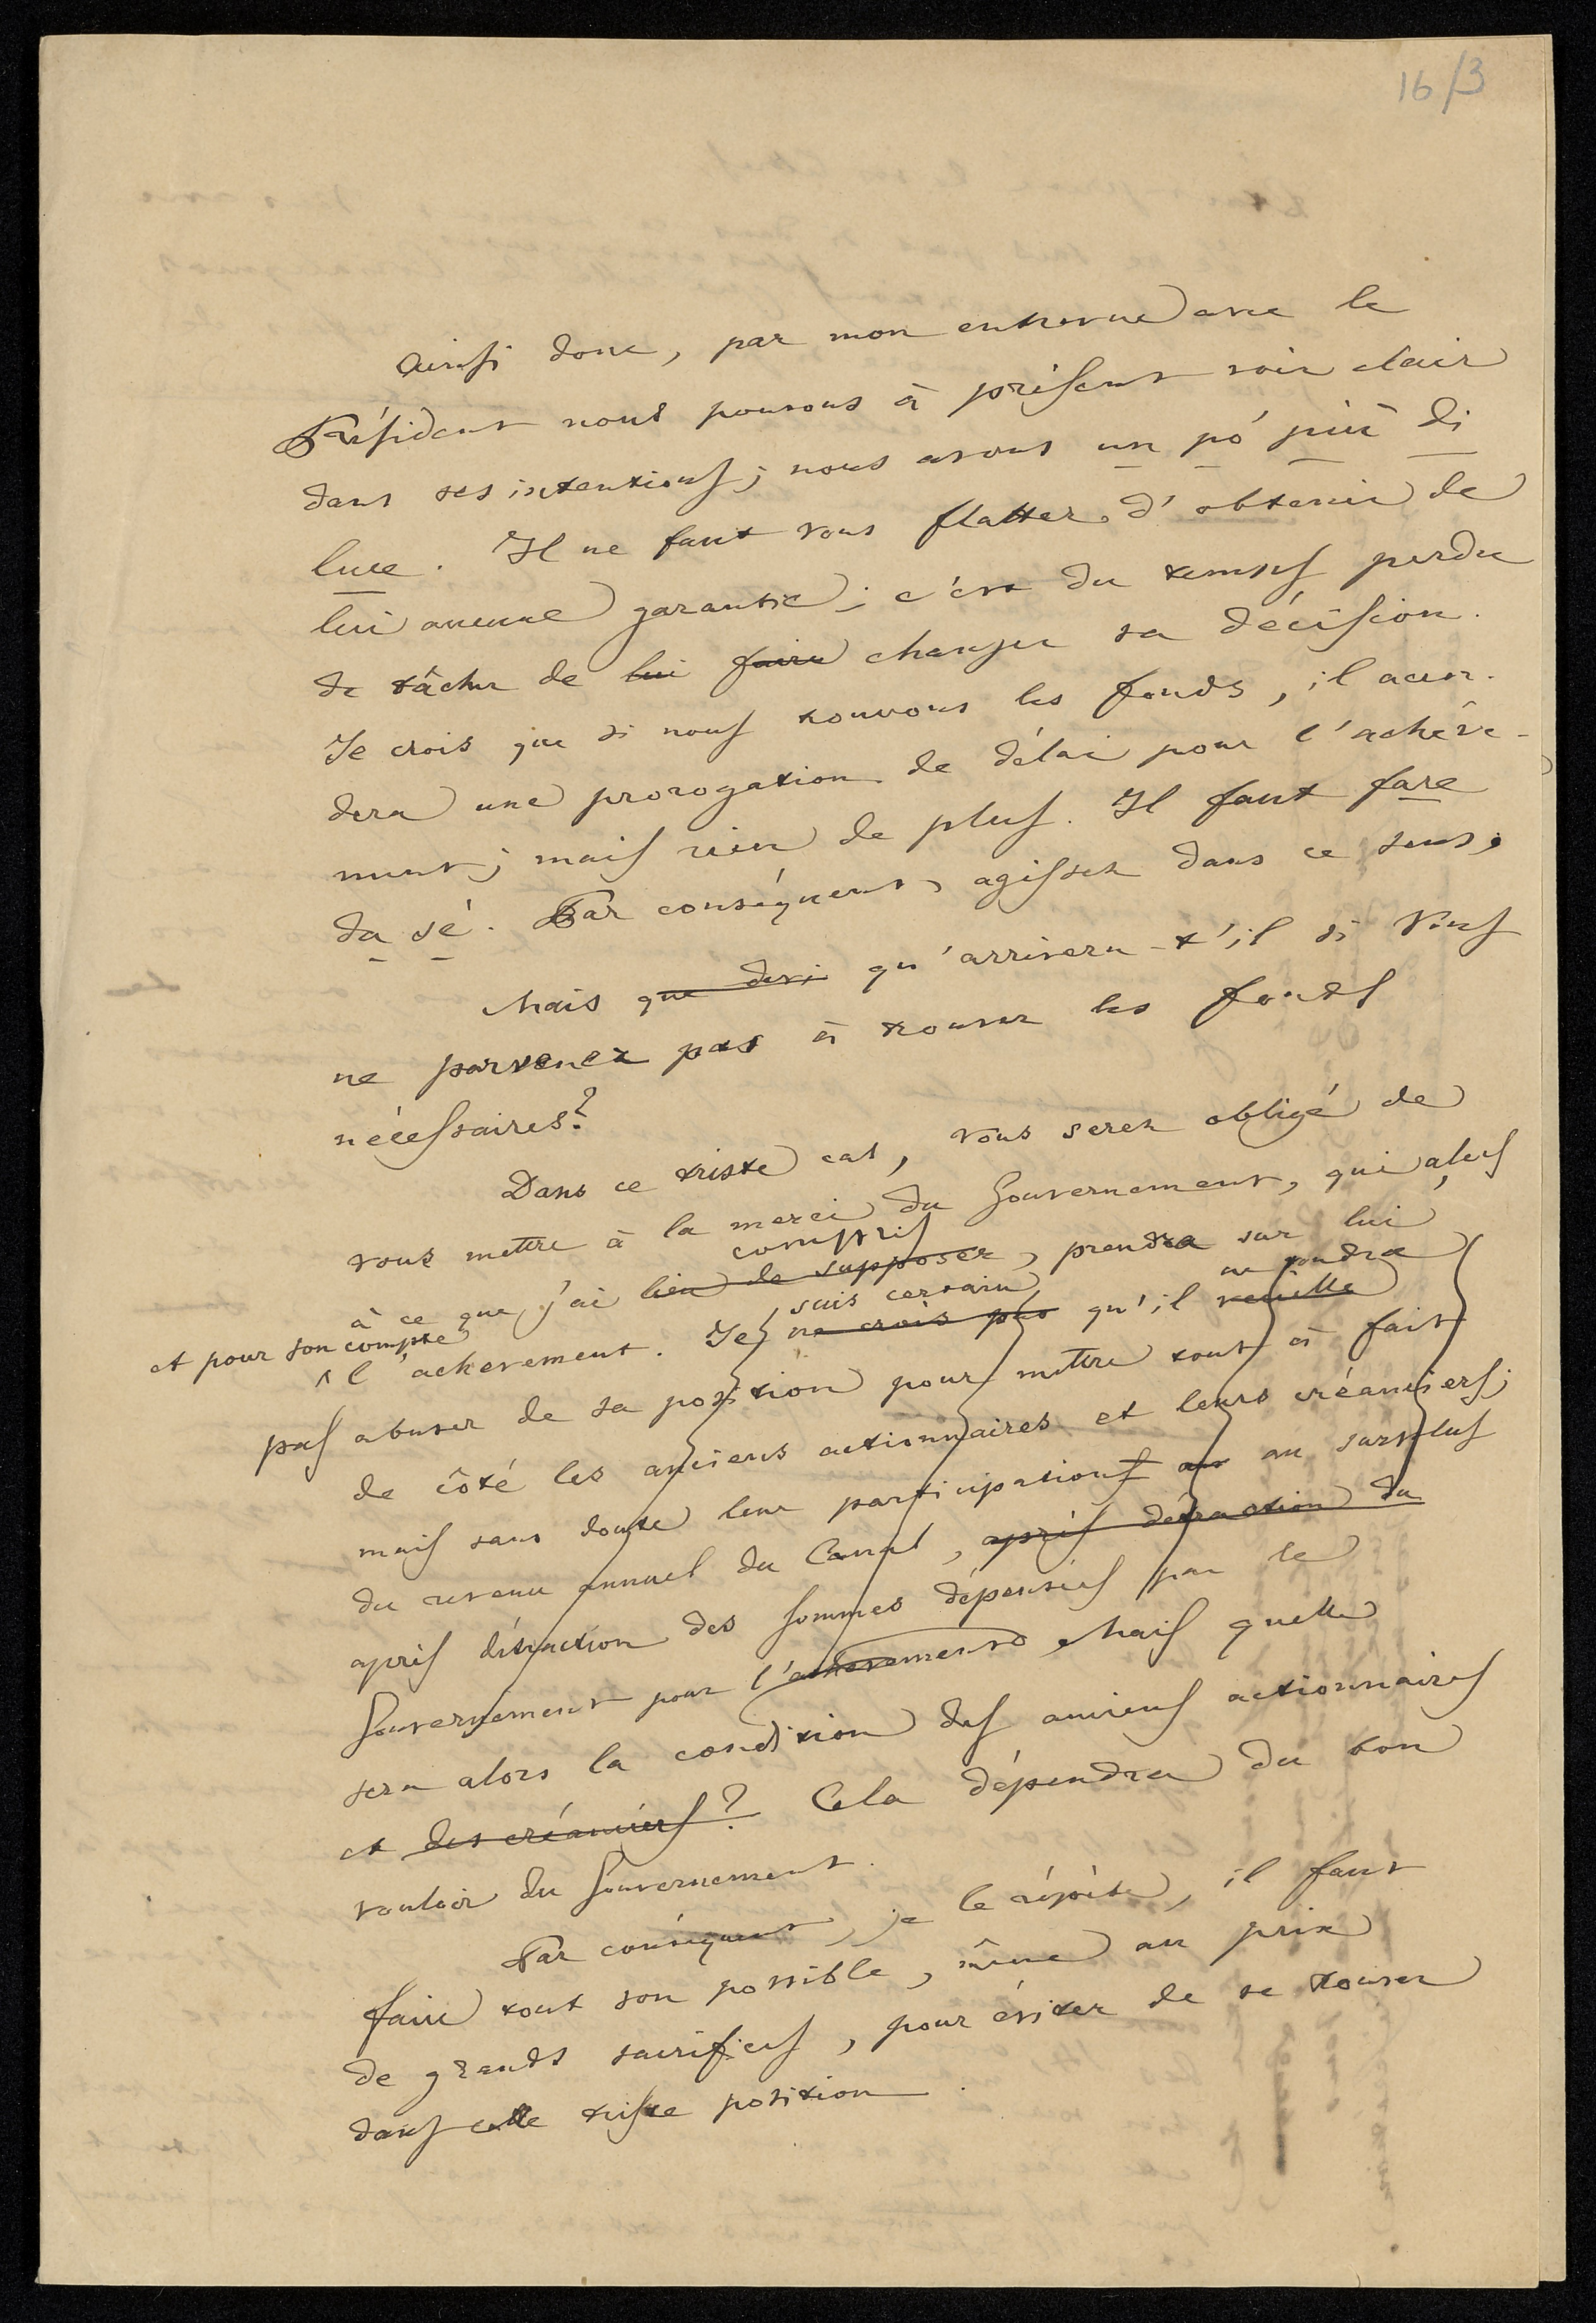 16/3
Ainsi donc, par mon entrevue avec le
Président nous pouvons à présent voir clair
dans ses intentions; nous avons un pó più di
luce. Il ne faut vous flatter d'obtenir de
lui aucune garantie; c'est du temps perdu
de tâcher de lui faire changer sa décision.
Je crois que si nous trouvons les fonds, il accor-
dera une prorogation de délai pour l'achève-
ment; mais rien de plus. Il faut fare
da sé. Par conséquent, agissez dans ce sens.
Mais que devi qu'arrivera-t'il si Vous
ne parvenez pas à trouver les fonds
nécessaires?
Dans ce triste cas, vous serez obligé de
vous mettre à la merci du Gouvernement, qui alors,
compris
à ce que j'ai lieu de supposer, prendra sur lui
suis certain ne voudra
et pour son compte
l'achevement. Je ne crois pas qu'il veuille
pas abuser de sa position pour mettre tout à fait
de côté les anciens actionnaires et leurs créanciers;
mais sans doute leur participation au au surplus
du revenu annuel du Canal, après détraction du
après détraction des sommes dépensées par le
Gouvernement pour l'achevement. Mais quelle
sera alors la condition des anciens actionnaires
et des créanciers? Cela dépendra du bon
vouloir du Gouvernement.
Par conséquent, je le répète, il faut
faire tout son possible, même au prix
de grands sacrifices, pour éviter de se trouver
dans cette triste position.